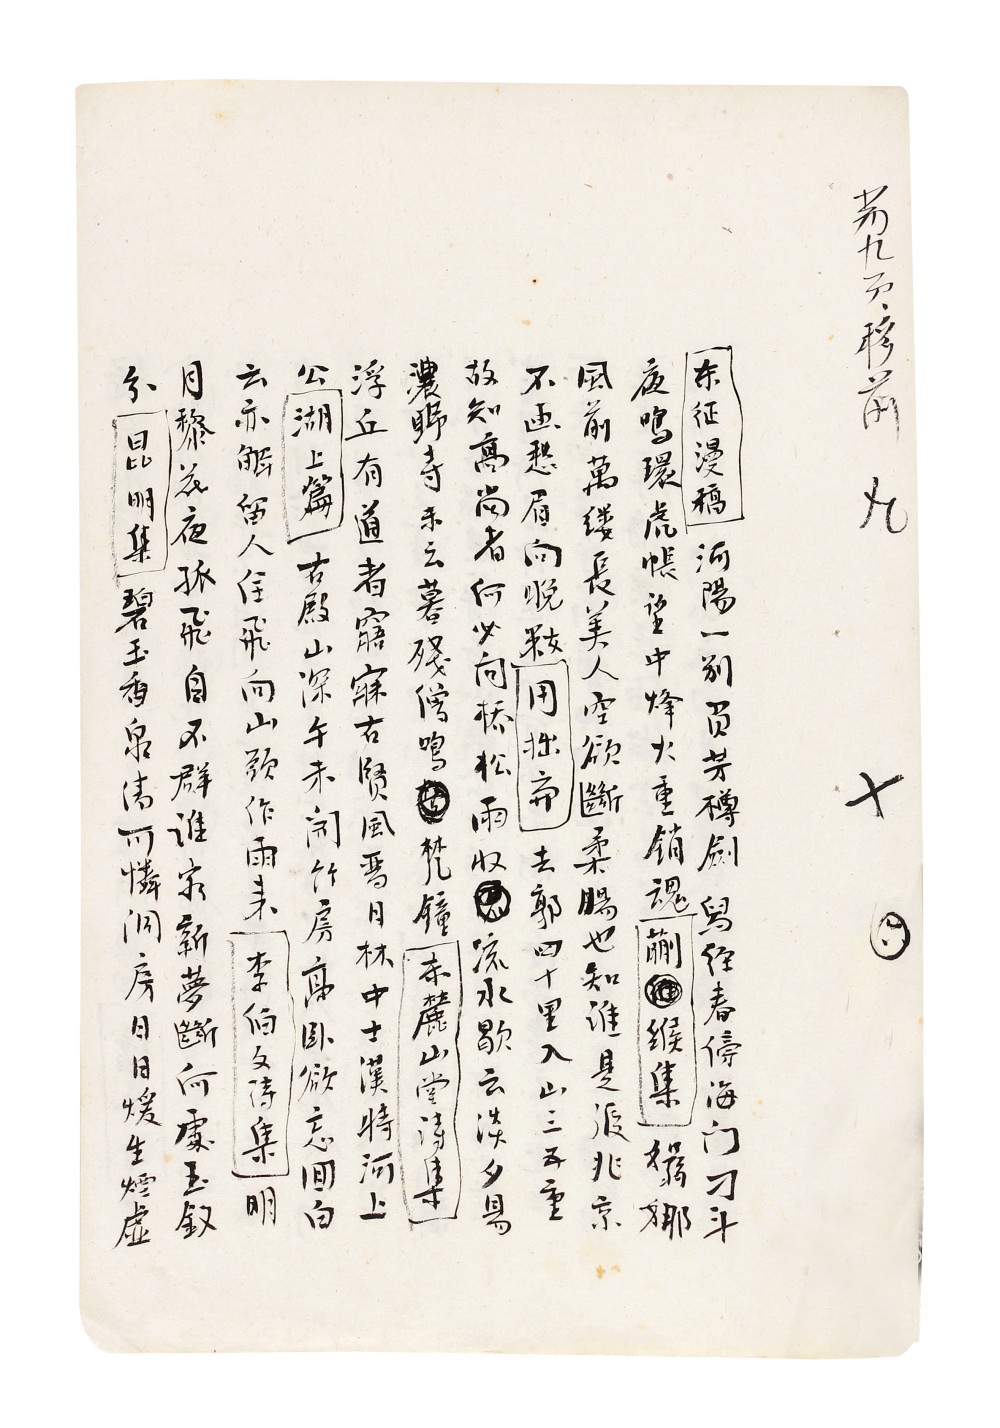 第九頁移前
九
十
东征漫稿 河陽一别負芳樽劍舄經春傍海门刁斗
夜鳴環虎帳望中烽火重銷魂 蒯緱集 猗娜
風前萬縷長美人空欲斷柔腸也知誰是張京
不画愁眉向晚 用拙斋 去郭四十里入山三五重
故知高尚者何必向榛松雨收流水歇云淡夕易
濃野寺未云暮殘僧鳴梵鐘 赤麓山堂詩集
浮丘有道者寤寐右賢風晋日林中士漢時河上
公 湖上篇 古殿山深午未闲竹房高卧欲忘回白
云亦解留人住飛向山頭作雨来 李伯文诗集 明
月黎花夜孤飛自不群谁家新夢斷何處玉釵
分 昆明集 碧玉香泉清可憐洞房日日煖生煙虚